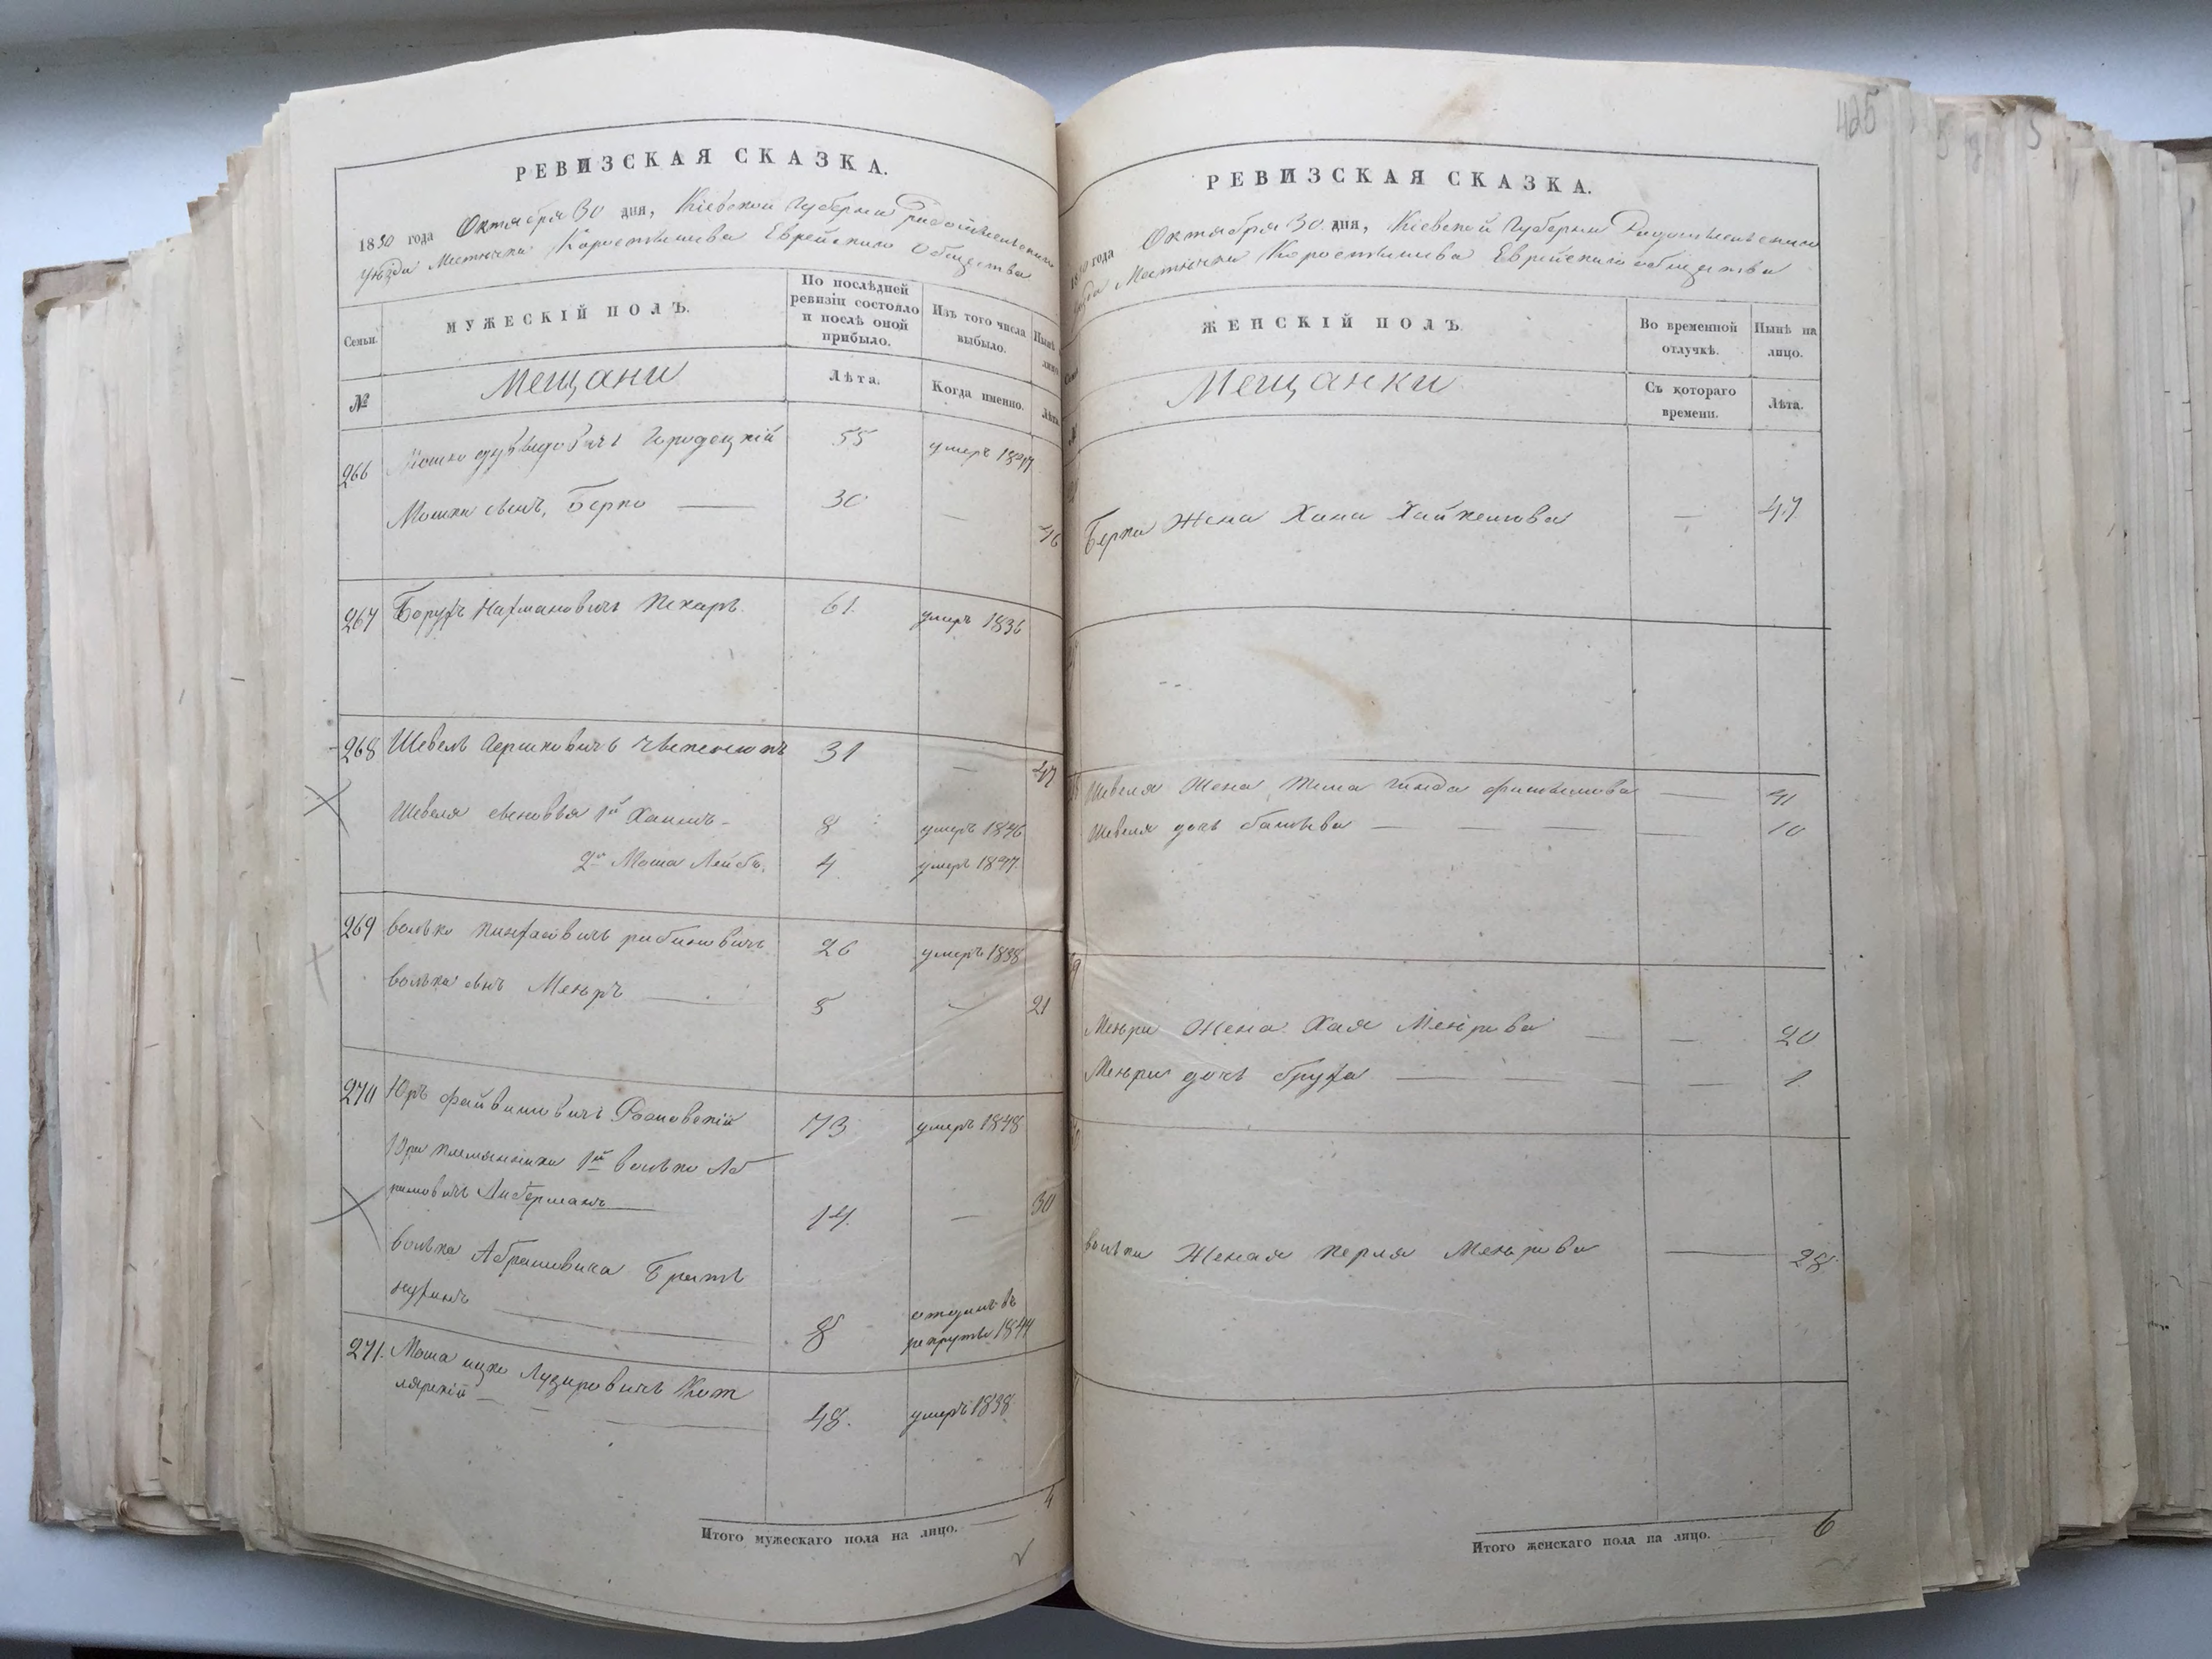 РЕВИЗСКАЯ СКАЗКА.
1850 года Октября 30 дня, Кіевской Губерніи Радомысльскаго
Уѣзда Мѣстечка Коростишева Еврейскаго Общества
Семьи.
МУЖЕСКІЙ ПОЛЪ.
По послѣдней
ревизіи состояло
и послѣ оной
прибыло.
Изъ того числа
выбыло.
Нынѣ
лицо
№
Мещани
Лѣта.
Когда именно.
Лѣта
266 Мошко Дувыдовичъ Городецкій 55 умеръ 1847
Мошки сынъ, Берко — 30 — 46
267 Борухъ Нахмановичъ Пекаръ 61 умеръ 1836
268 Шевель Гершковичъ 31 — 47
Шевеля сыновья 1й Хаимъ 8 умеръ 1846
2й Моша Лейбъ 4 умеръ 1847
269 Волько Пинхасовичъ Рабиновичъ 26 умеръ 1838
Волька сынъ Мееръ — 5 — 21
270 Юръ Файвишовичъ 73 умеръ 1848
Юри племянники 1й Волько Аб
рамовичъ Либерманъ — 14 — 30
Волька Абрамовича Братъ
Нухимъ — 8 отданъ въ
рекруты 1844
271. Моша Ицко Лузировичъ Кот
лярскій — 48. умеръ 1838
4
Итого мужескаго пола на лицо.
425
РЕВИЗСКАЯ СКАЗКА.
1850 года Октября 30 дня, Кіевской Губерніи Радомысльскаго
Уѣзда Мѣстечка Коростишева Еврейскаго общества
ЖЕНСКІЙ ПОЛЪ
Во временной
отлучкѣ.
Нынѣ на
лицо.
Мещанки
Съ котораго
времени.
Лѣта.
Берка Жена Хана — 47
Шевеля Жена Гинда — 41
Шевеля дочь Батшева — — — — 10
Меера Жена Хая — — 20
Меера дочь Бруха — — — — 1
Волька Женая Перля Меерова — 28
Итого женскаго пола на лицо. 6